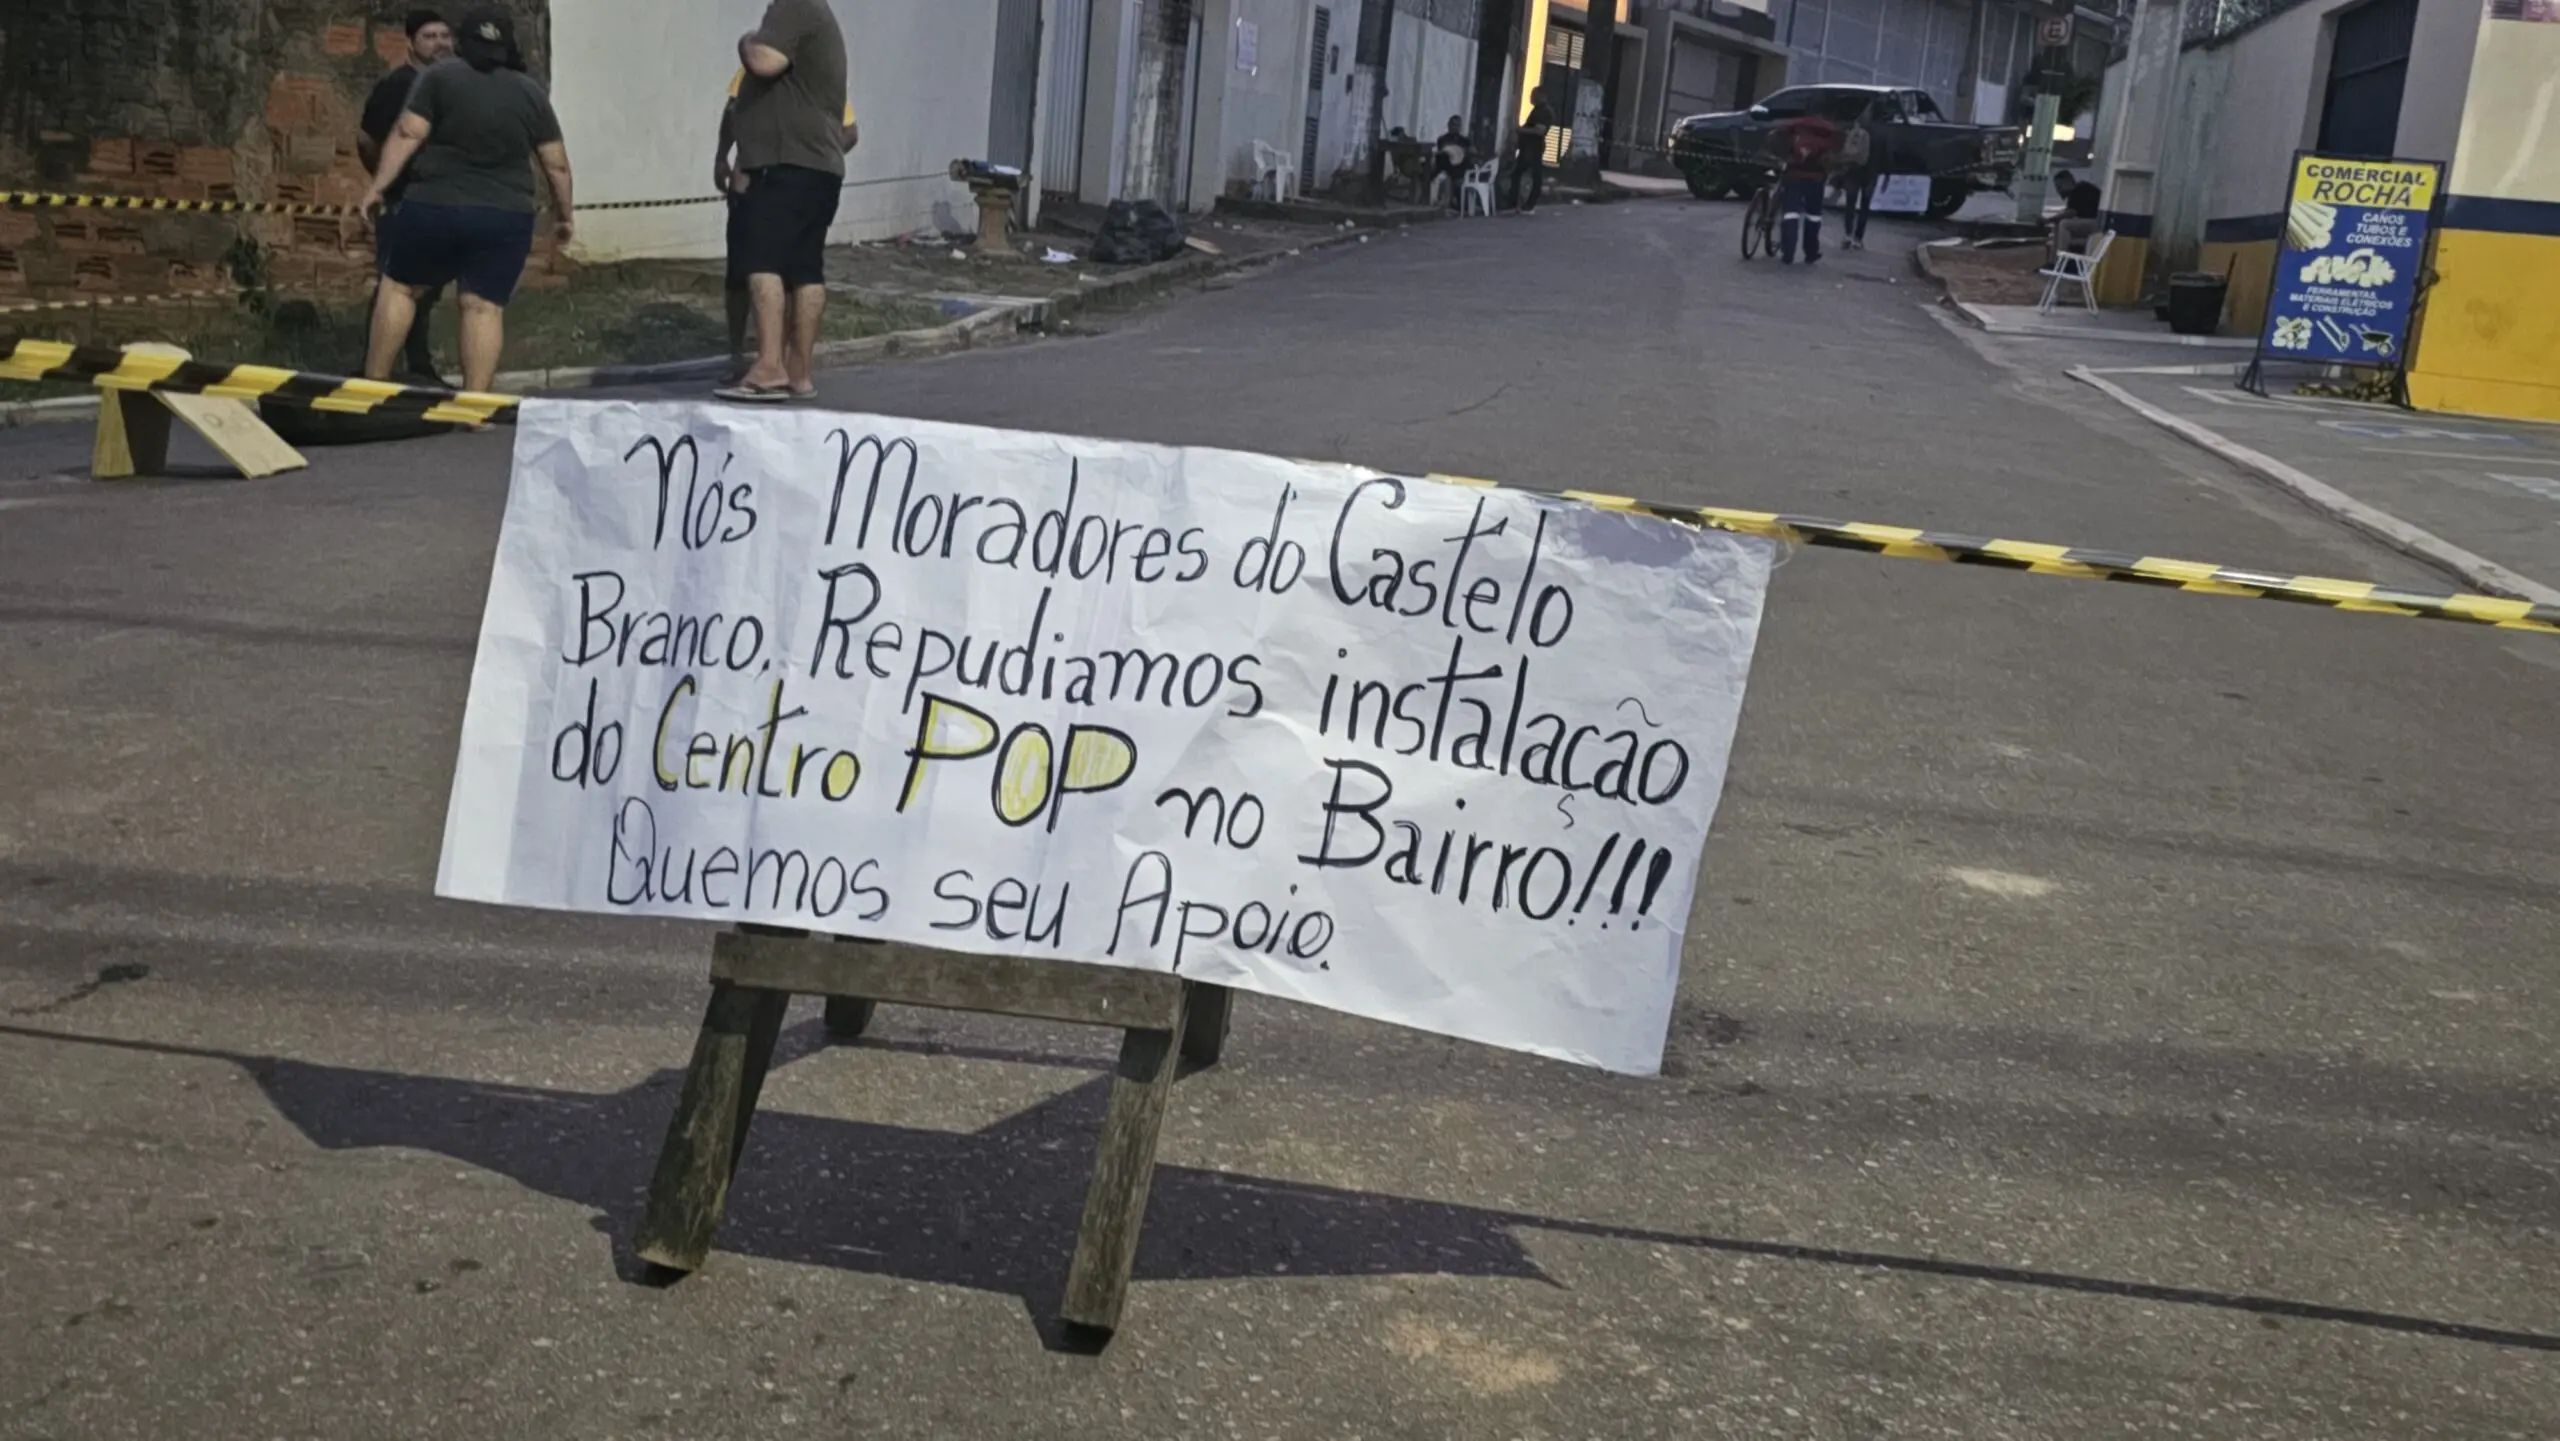 COMERCIAL
ROCHA
CANOS
TUBOS E
CONEXÕES
FERRAMENTAS,
MATERIAIS ELÉTRICOS
E CONSTRUÇÃO
Nós Moradores do Castelo
Branco, Repudiamos instalação
do Centro POP no Bairro!!!
Quemos seu Apoio.